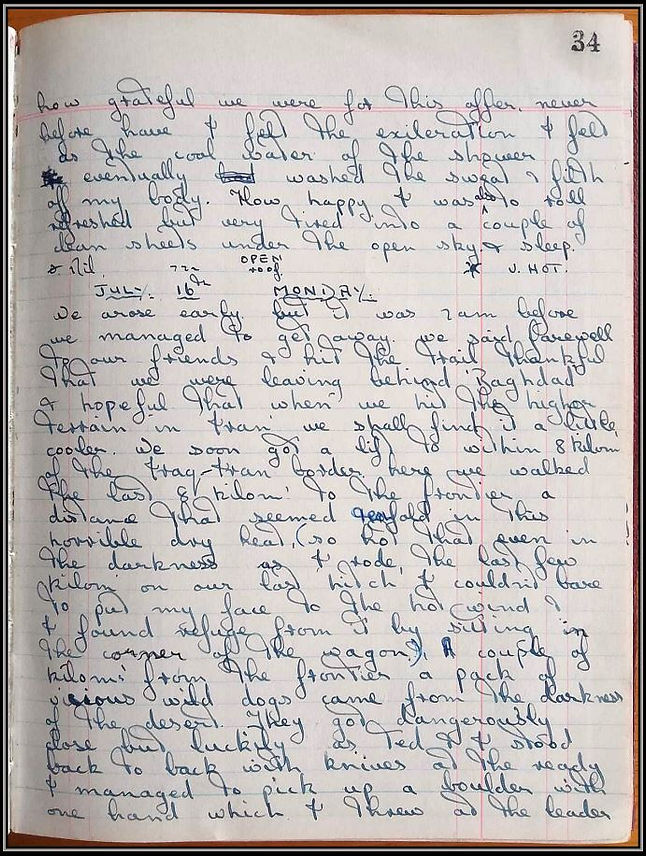 34
how grateful we were for this offer. never
before have I felt the exileration I felt
as the cool water of the shower
eventually washed the sweat & filth
of my body. How happy I was also to roll
refreshed but very tired into a couple of
clean sheets under the open sky & sleep.
& Nil. OPEN roof. V. HOT.
JULY. 16th MONDAY.
we arose early but it was 7am before
we managed to get away. we said farewell
to our friends & hit the trail thankful
that we were leaving behind Baghdad
& hopeful that when we hit the higher
terrain in Iran we shall find it a little
cooler. We soon got a lift to within 8 kilom
of the Iraq-Iran border here we walked
the last 8 kilom' to the frontier a
distance that seemed tenfold in this
horrible dry heat, (so hot that even in
the darkness as I rode, the last few
kilom' on our last hitch I couldn't bare
to put my face to the hot wind &
I found refuge from it by sitting in
the corner of the wagon.) A couple of
kilom: from the frontier a pack of
vicious wild dogs came from the darkness
of the desert. They got dangerously
close but luckily as Ted & I stood
back to back with knives at the ready
I managed to pick up a boulder with
one hand which I threw at the leader